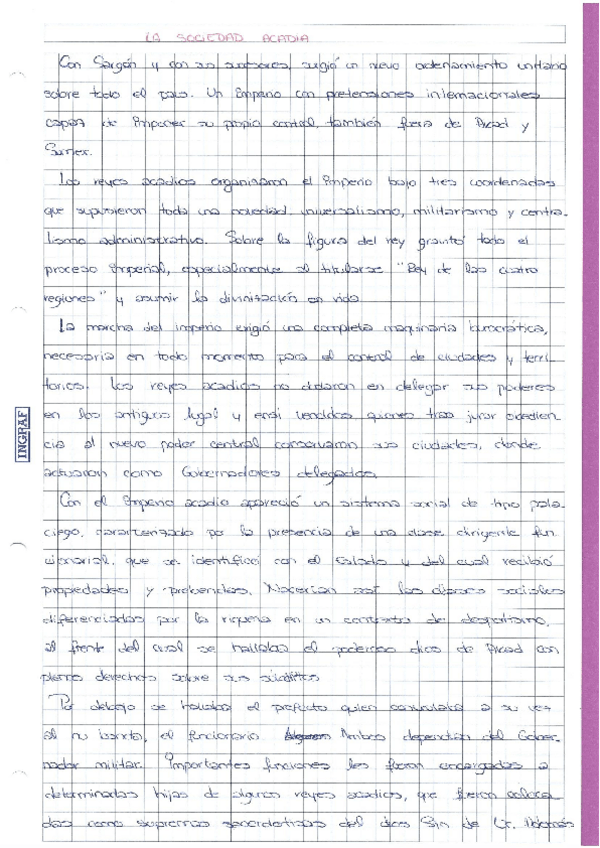 LA SOCIEDAD ACADIA
Con Sargón y con sus sucesores, surgió un nuevo ordenamiento unitario
sobre todo el país. Un Imperio con pretensiones internacionales
capaz de imponer su propio control, también fuera de Acad y
Sumer.
Los reyes acadios organizaron el Imperio bajo tres coordenadas
que supusieron toda una novedad: universalismo, militarismo y centra-
lismo administrativo. Sobre la figura del rey gravitó todo el
proceso Imperial, especialmente al titularse "Rey de las cuatro
regiones" y asumir la divinización en vida.
La marcha del imperio exigió una completa maquinaria burocrática,
necesaria en todo momento para el control de ciudades y terri-
torios. Los reyes acadios no dudaron en delegar sus poderes
en los antiguos lugal y ensi vencidos quienes tras jurar obedien
cia al nuevo poder central conservaron sus ciudades, donde
actuaron como Gobernadores delegados.
Con el Imperio acadio apareció un sistema social de tipo pala-
ciego, caracterizado por la presencia de una clase dirigente fun
cionarial, que se identificó con el Estado y del cual recibió
propiedades y prebendas. Nacerían así las clases sociales
diferenciadas por la riqueza en un contexto de despotismo,
al frente del cual se hallaba el poderoso dios de Acad con
plenos derechos sobre sus súbditos
Por debajo se hallaba el prefecto quien controlaba a su vez
al el funcionario Ambos dependían del Gober-
nador militar. Importantes funciones les fueron encargadas a
determinadas hijas de algunos reyes acadios, que fueron coloca
das como supremas sacerdotisas del dios Sin de Ur. Además
INGRAF